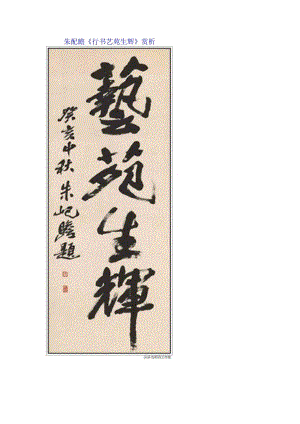 朱配瞻《行书艺苑生辉》赏析
藝苑生輝
癸亥中秋朱屺瞻題